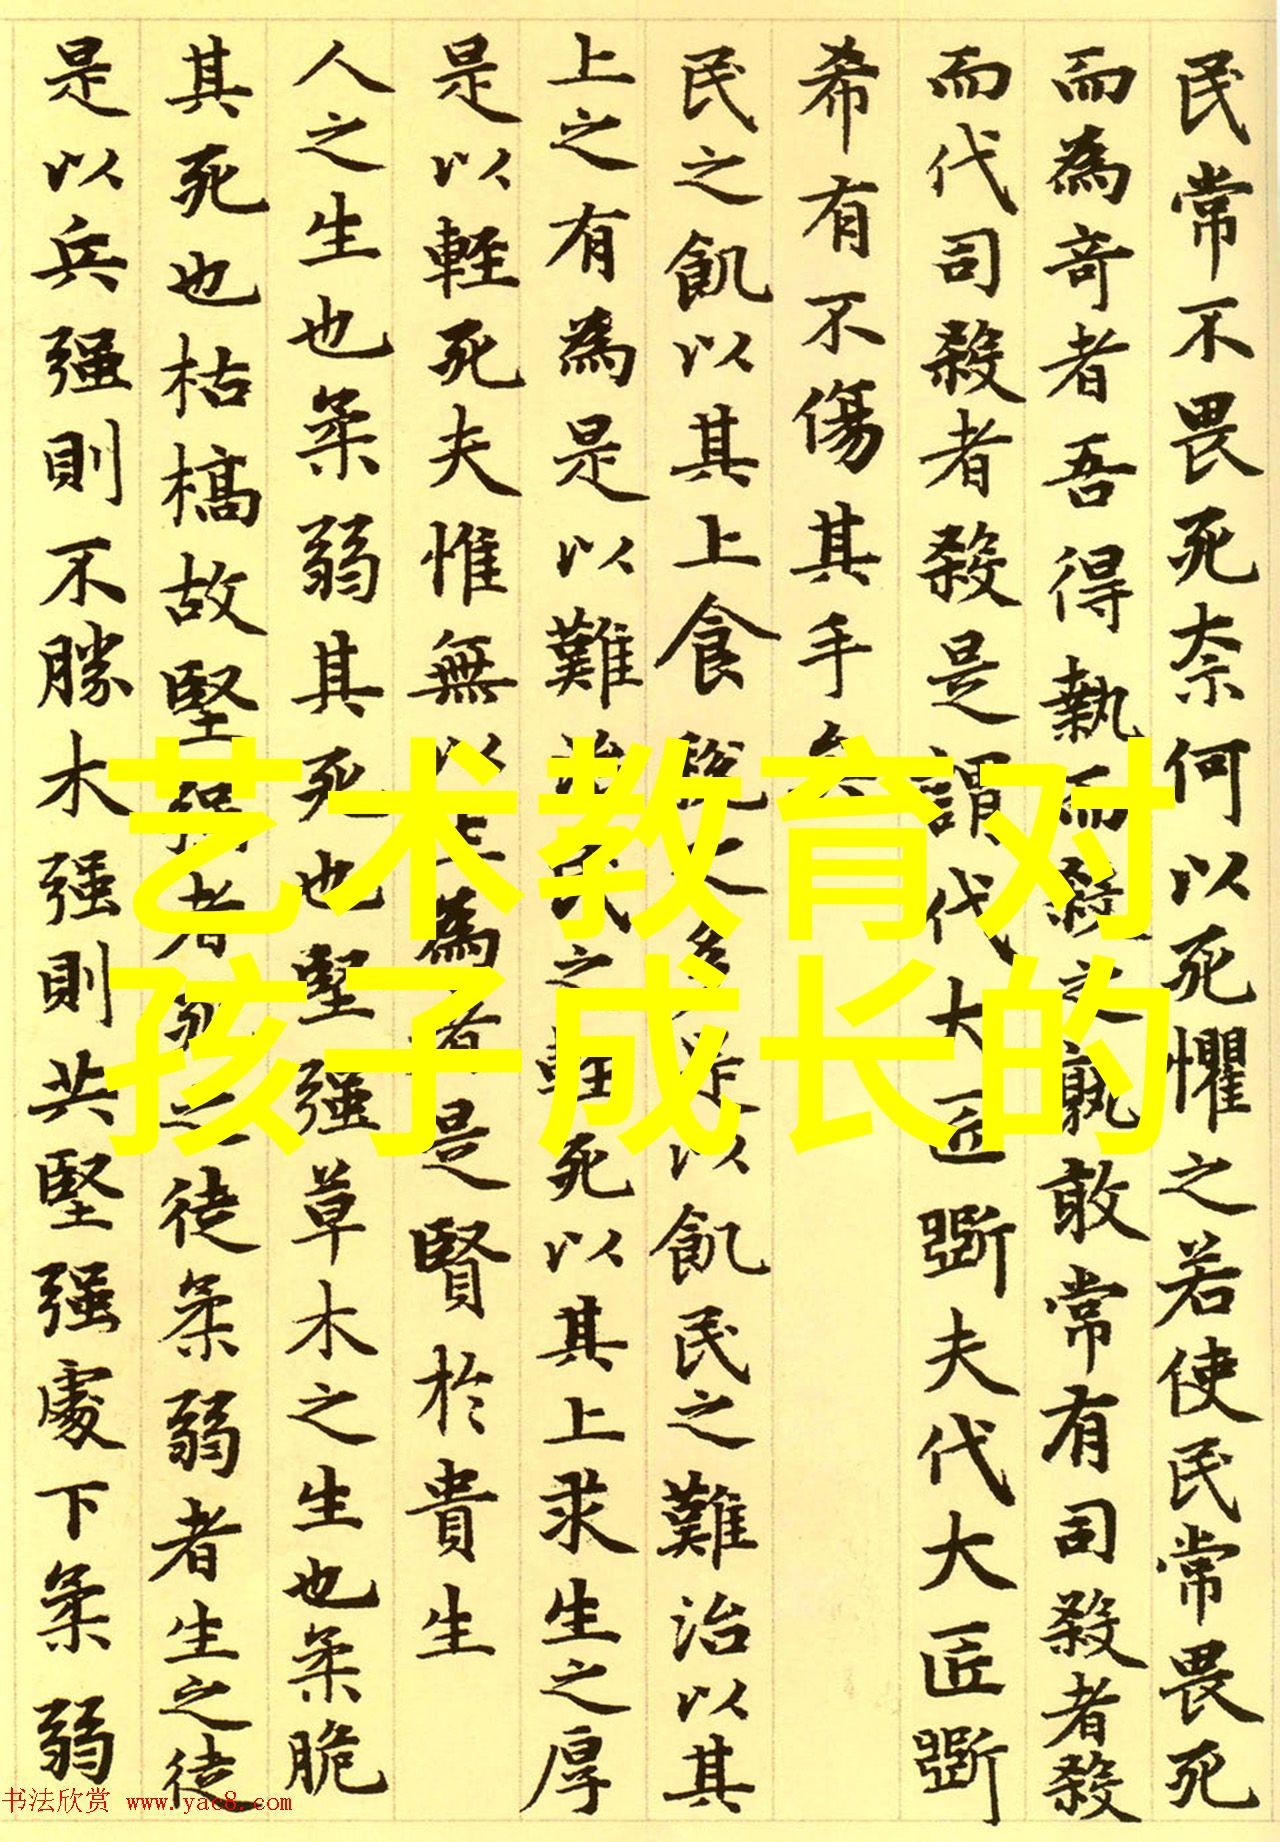 民常不畏死奈何以死懼之若使民常畏死
而為奇者吾得執而殺之孰敢常有司殺者殺
而代司殺者殺是謂代大匠斲夫代大匠斲
希有不傷其手矣
民之飢以其上食稅之多是以飢民之難治以其
上之有為是以難治民之輕死以其上求生之厚
是以輕死夫惟無以生為者是賢於貴生
人之生也柔弱其死也堅强草木之生也柔脆
其死也枯槁故堅强者死之徒柔弱者生之徒
是以兵强則不勝木强則共堅强處下柔弱
艺术教育对
孩子成长的
书法欣赏 www.yac8.com